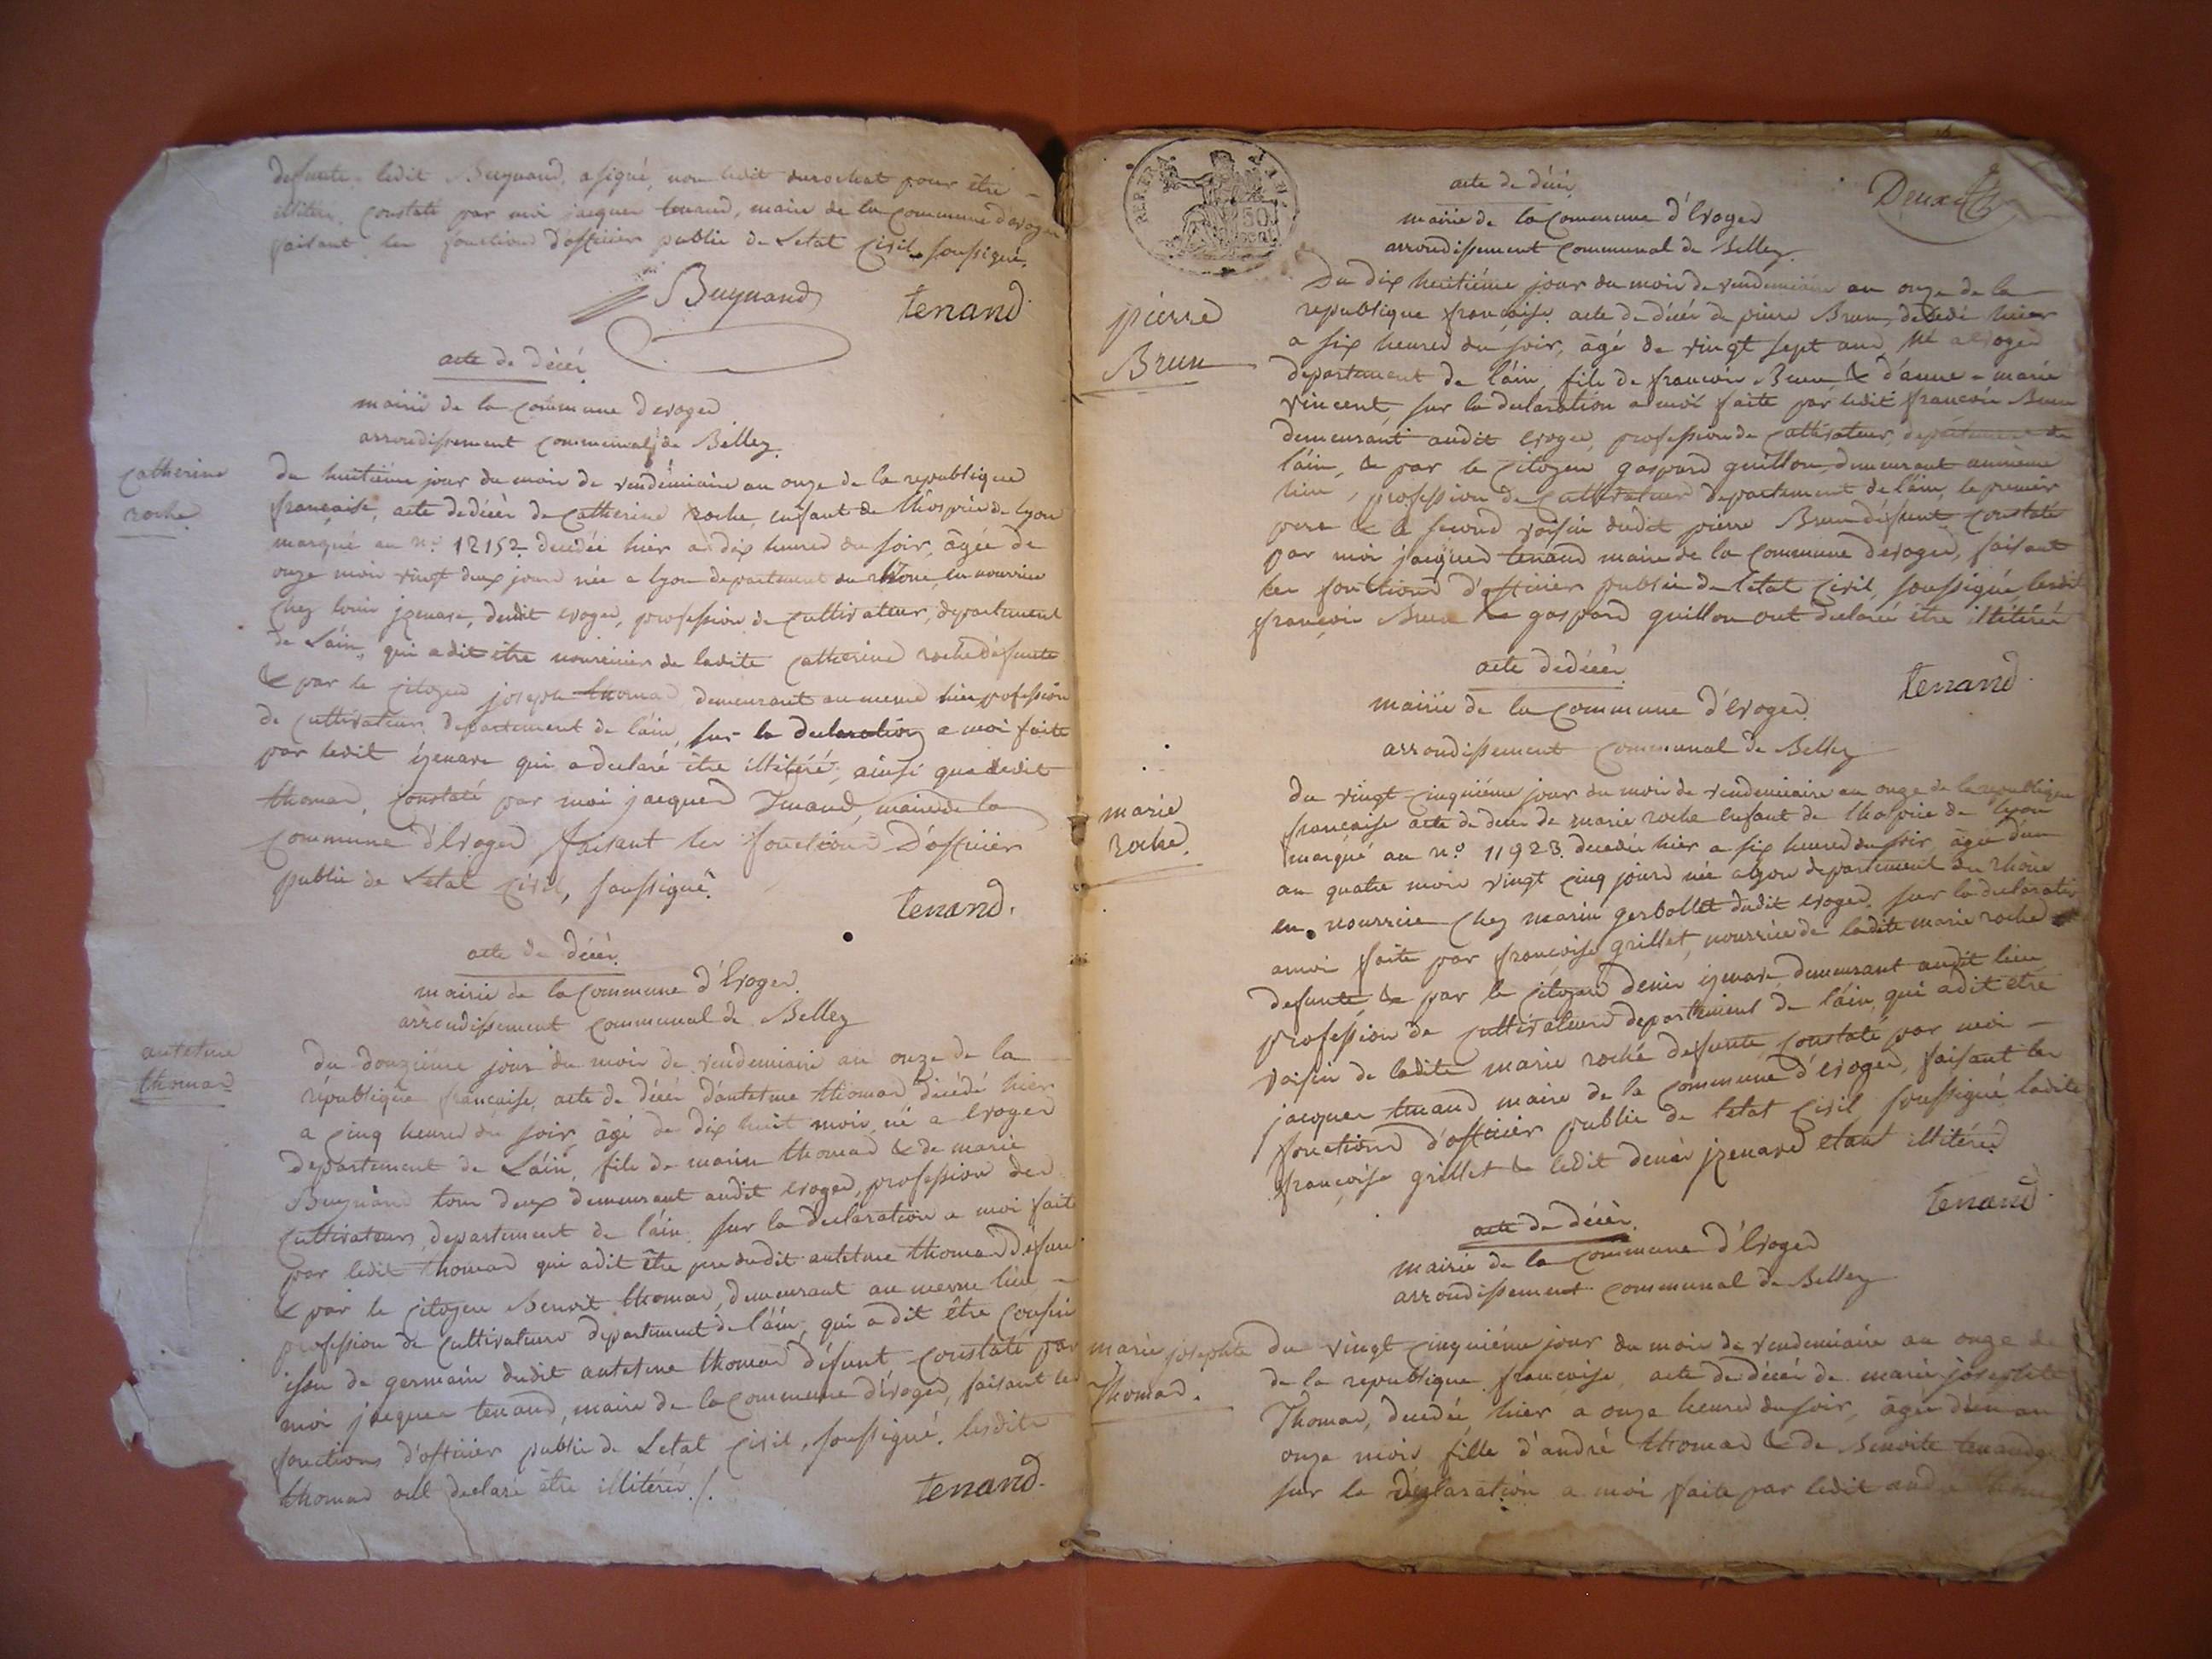 defunte. ledit Buynand, a signé, non ledit durochat pour être
illitéré. Constaté par moi jacques tenand, maire de la Commune d'evoges
faisant les fonctions d'officier public de Letat Civil soussigné.
Buynand tenand
acte de décès
mairie de la Commune d'evoges
arrondissement Communal de Belley
catherine
roche
du huitième jour du mois de vendémiaire an onze de la republique
française, acte de décès de Catherine roche enfant de l'hospice de Lyon
marqué au n.º 12152 decedée hier a dix heures du soir, âgée de
onze mois vingt deux jours née a lyon departement du rhone, en nourrice
chez louis jzenare, dudit evoges, profession de cultivateur, departement
de L'ain, qui a dit être nourricier de ladite Catherine roche défunte
& par le citoyen joseph thomas demeurant au meme lieu profession
de cultivateur departement de l'ain, sur la declaration a moi faite
par ledit izenare qui a declaré être illitéré, ainsi que ledit
thomas, Constaté par moi jacques Tenand, maire de la
Commune d'Evoges faisant les fonctions d'officier
public de Letat Civil, soussigné.
tenand.
acte de décès.
mairie de la Commune d'Evoges.
arrondissement Communal de Belley
antelme
thomas
du douzième jour du mois de vendemiaire an onze de la
république française, acte de décès d'antelme thomas décédé hier
a cinq heures du soir, âgé de dix huit mois, né a Evoges
departement de L'ain, fils de marin thomas & de marie
Buynand tous deux demeurant audit evoges, profession de
cultivateurs, departement de l'ain. sur la declaration a moi faite
par ledit thomas qui a dit être pere dudit antelme thomas défunt
& par le citoyen Benoit thomas, demeurant au meme lieu
profession de cultivateur departement de l'ain, qui a dit être Cousin
issu de germain dudit antelme thomas défunt Constaté par
moi jacques tenand, maire de la Commune d'évoges, faisant les
fonctions d'officier public de Letat Civil, soussigné. lesdits
thomas ont declaré être illitérés ./.
tenand.
REP. FRA.
50
Deux
acte de décès
mairie de la Commune d'Evoges
arrondissement Communal de Belley.
pierre
Brun
Du dix huitième jour du mois de vendemiaire an onze de la
republique française. acte de décès de pierre Brun, décédé hier
a six heures du soir, âgé de vingt sept ans, né a Evoges
departement de l'ain, fils de françois Brun & d'anne marie
vincent, sur la declaration a moi faite par ledit françois Brun
demeurant audit evoges, profession de Cultivateur, departement de
l'ain, & par le Citoyen gaspard guillon demeurant au meme
lieu, profession de Cultivateur departement de l'ain, le premier
pere & le second voisin dudit pierre Brun défunt Constaté
par moi jacques tenand maire de la Commune d'evoges, faisant
les fonctions d'officier public de l'etat Civil, soussigné, lesdits
françois Brun & gaspard guillon ont declaré être illitérés
tenand.
acte de décès
mairie de la Commune d'Evoges
arrondissement Communal de Belley
marie
roche.
du vingt cinquième jour du mois de vendemiaire an onze de la republique
française acte de deces de marie roche Enfant de l'hospice de lyon
marqué au n.º 11923. decedée hier a six heures du soir, âgée d'un
an quatre mois vingt cinq jours née a lyon departement du rhône
en nourrice chez marin gerbollet dudit evoges, sur la declaration
a moi faite par françoise grillet, nourrice de ladite marie roche
defunte, & par le citoyen denis izenare, demeurant audit lieu
profession de cultivateur departement de l'ain, qui a dit etre
voisin de ladite marie roche defunte Constaté par moi
jacques tenand maire de la Commune d'évoges, faisant les
fonctions d'officier public de letat Civil soussigné. ladite
françoise grillet & ledit denis jzenare etant illitérés
tenand.
acte de décès
mairie de la Commune d'Evoges
arrondissement Communal de Belley
marie josephte
Thomas.
du vingt cinquième jour du mois de vendemiaire an onze de
de la republique française, acte de décès de marie josephte
Thomas, decedée hier a onze heures du soir, âgée d'un an
onze mois, fille d'andré thomas & de Benoite tenand
sur la declaration a moi faite par ledit andré thomas